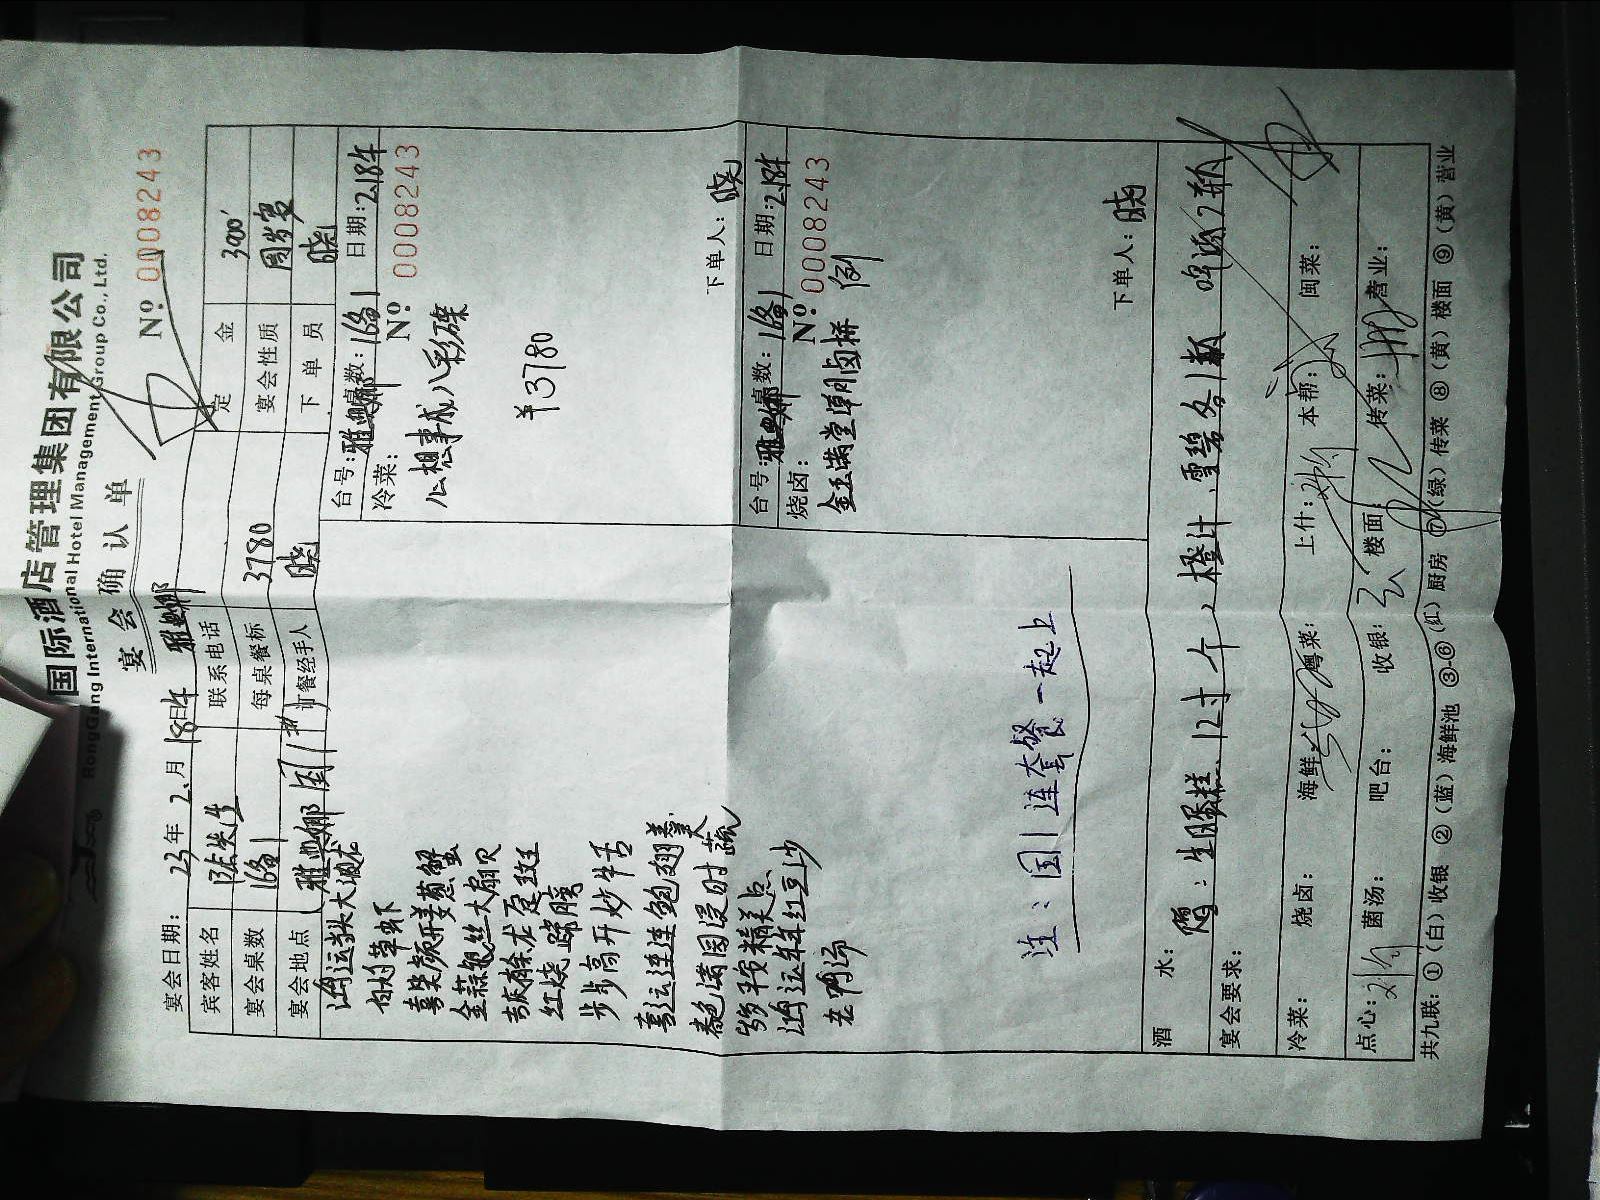 国际酒店管理集团有限公司
RongGang International Hotel Management Group Co., Ltd.
宴会确认单
Nº 0008243
宴会日期: 23年2月18日午 雅典娜
宾客姓名 陈先生 联系电话 定金 3000
宴会桌数 16备1 每桌餐标 3780 宴会性质 周岁宴
宴会地点 雅典娜 订餐经手人 晓 下单员 晓
鸿运当头大
白灼草虾
喜笑颜开姜葱蟹
金蒜粉丝大扇贝
红烧蹄膀
步步高升炒牛舌
喜运连连鲍翅羹
春色满园浸时蔬
岁岁平安精美点
鸿运年年红豆沙
老鸭汤
台号: 雅典娜 桌数: 16备1 日期: 2.18午
冷菜: Nº 0008243
心想事成八彩碟
¥3780
下单人: 晓
台号: 雅典娜 桌数: 16备1 日期: 2.18午
烧卤: Nº 0008243
金玉满堂卤拼 例
下单人: 晓
注: 连大餐一起上
酒水:
宴会要求: 生日蛋糕 12寸个, 橙汁、雪碧各1瓶 啤酒2瓶
冷菜: 烧卤: 海鲜 粤菜: 上什: 本帮: 闽菜:
点心: 菌汤: 吧台: 收银: 楼面: 传菜: 营业:
共九联: ①(白)收银 ②(蓝)海鲜池 ③-⑥(红)厨房 ⑦(绿)传菜 ⑧(黄)楼面 ⑨(黄)营业